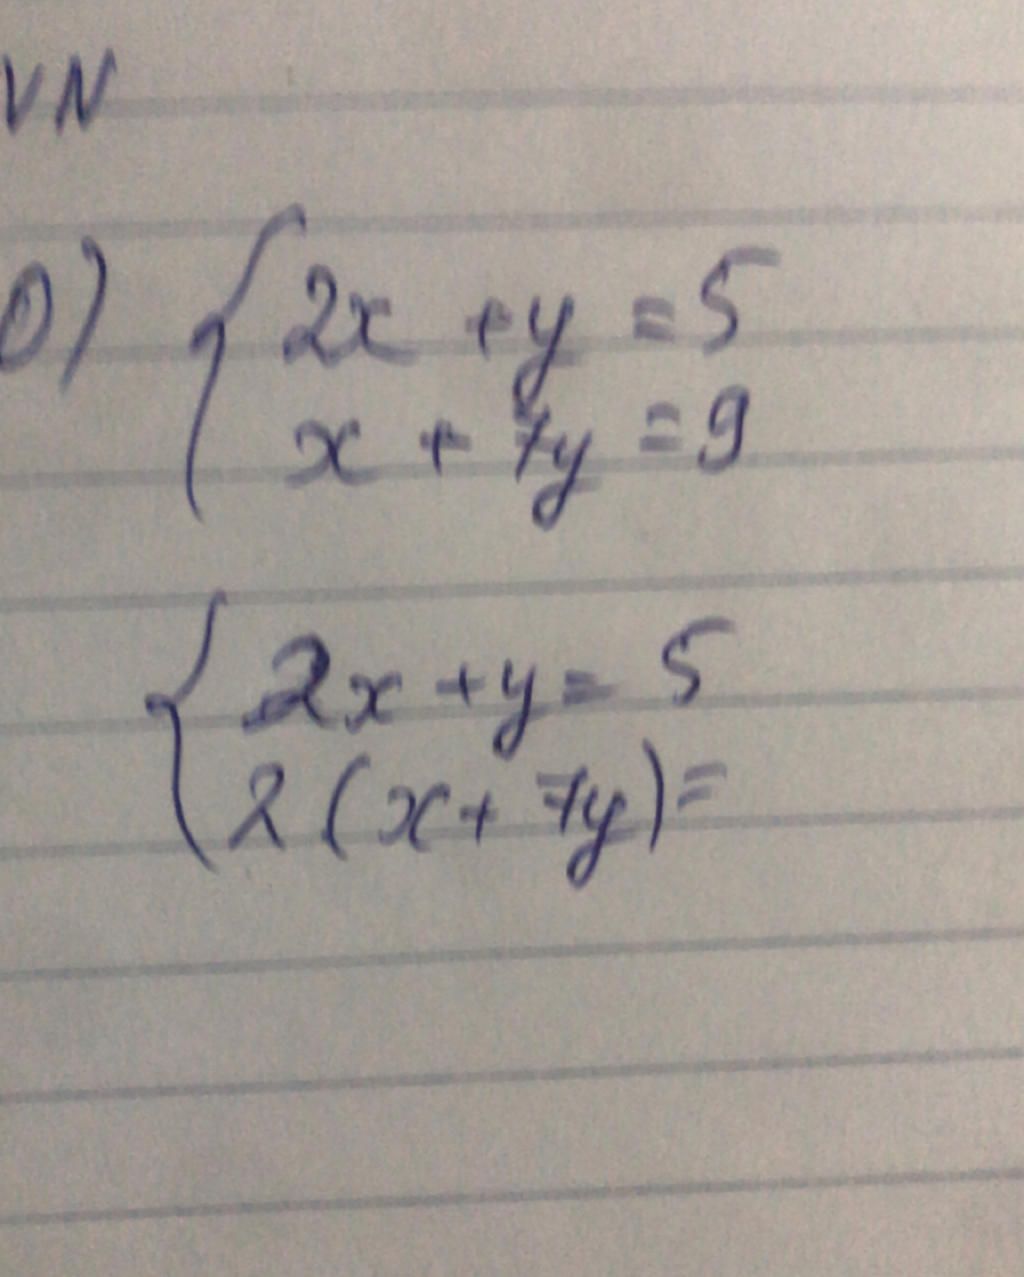 VN
0) { 2x + y = 5
x + 7y = 9
{ 2x + y = 5
2 (x + 7y) =